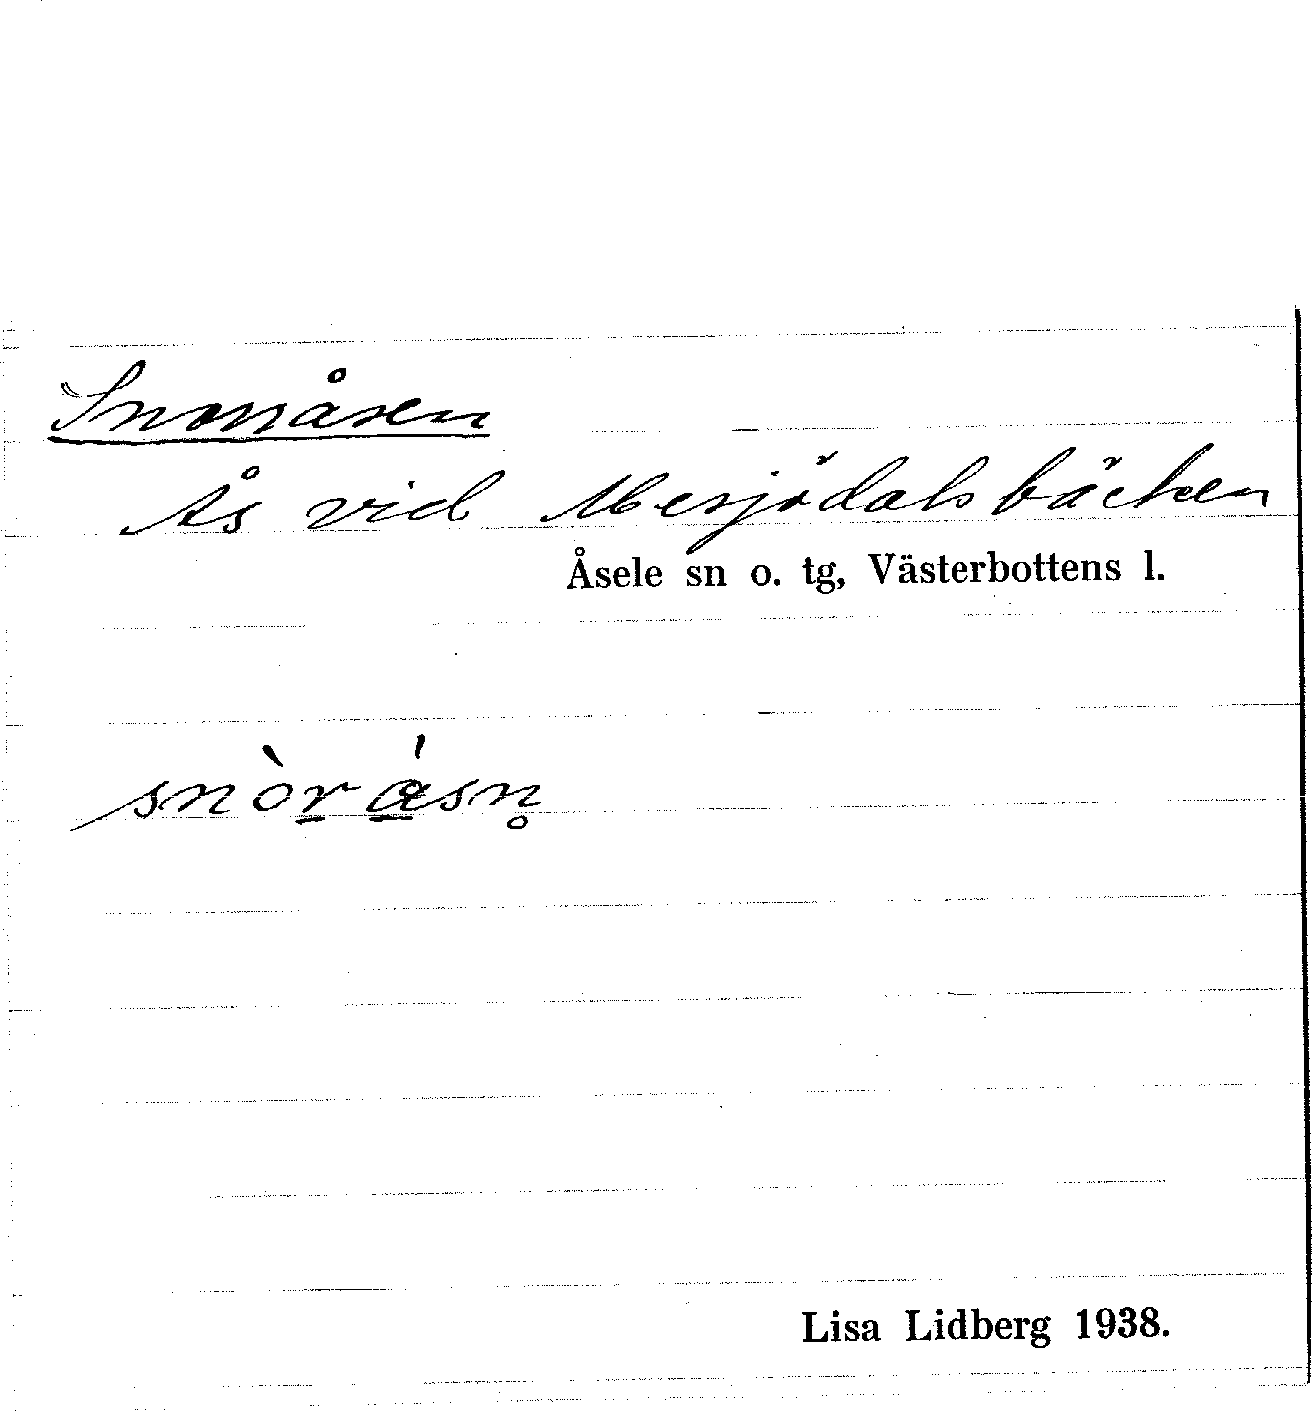 Snorråsen
Ås vid Mesjödalsbäcken
Åsele sn o. tg, Västerbottens l.
snòr̲ ǻ̲sn̥
Lisa Lidberg 1938.